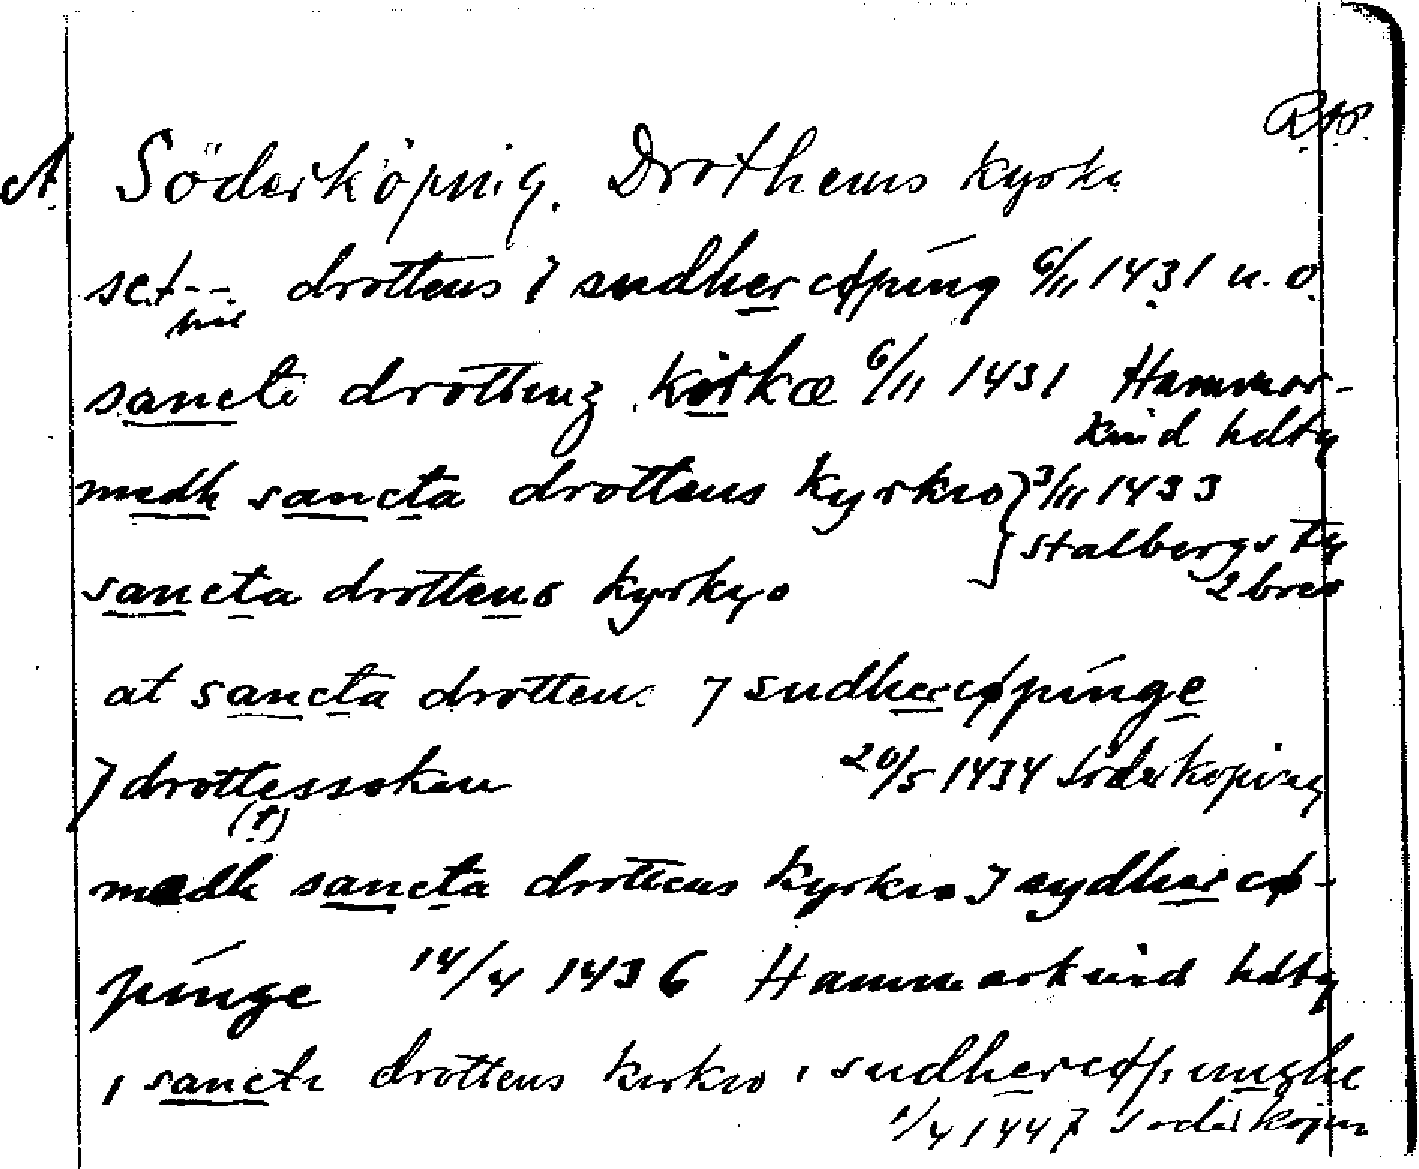 RAP.
A Söderköping. Drothems kyrka
sct--. drottens j sudhercøping 6/11 1431 u. o.
sancti drottenz kirkæ 6/11 1431 Hammar-
kind hdtg
medh sancta drottens kyrkio } 3/11 1433
Stalbergs tg
sancta drottens kyrkyo 2 brev
at sancta drotten. j sudhercøpinge
j drottessoken 20/5 1434 Söderköping
(t)
medh sancta drottens kyrkio j sydhercø-
pinge 14/4 1436 Hammarkind hdtg
i sancti drottens kirkio i sudhercøpiunghe
1/4 1447 Söderköpin